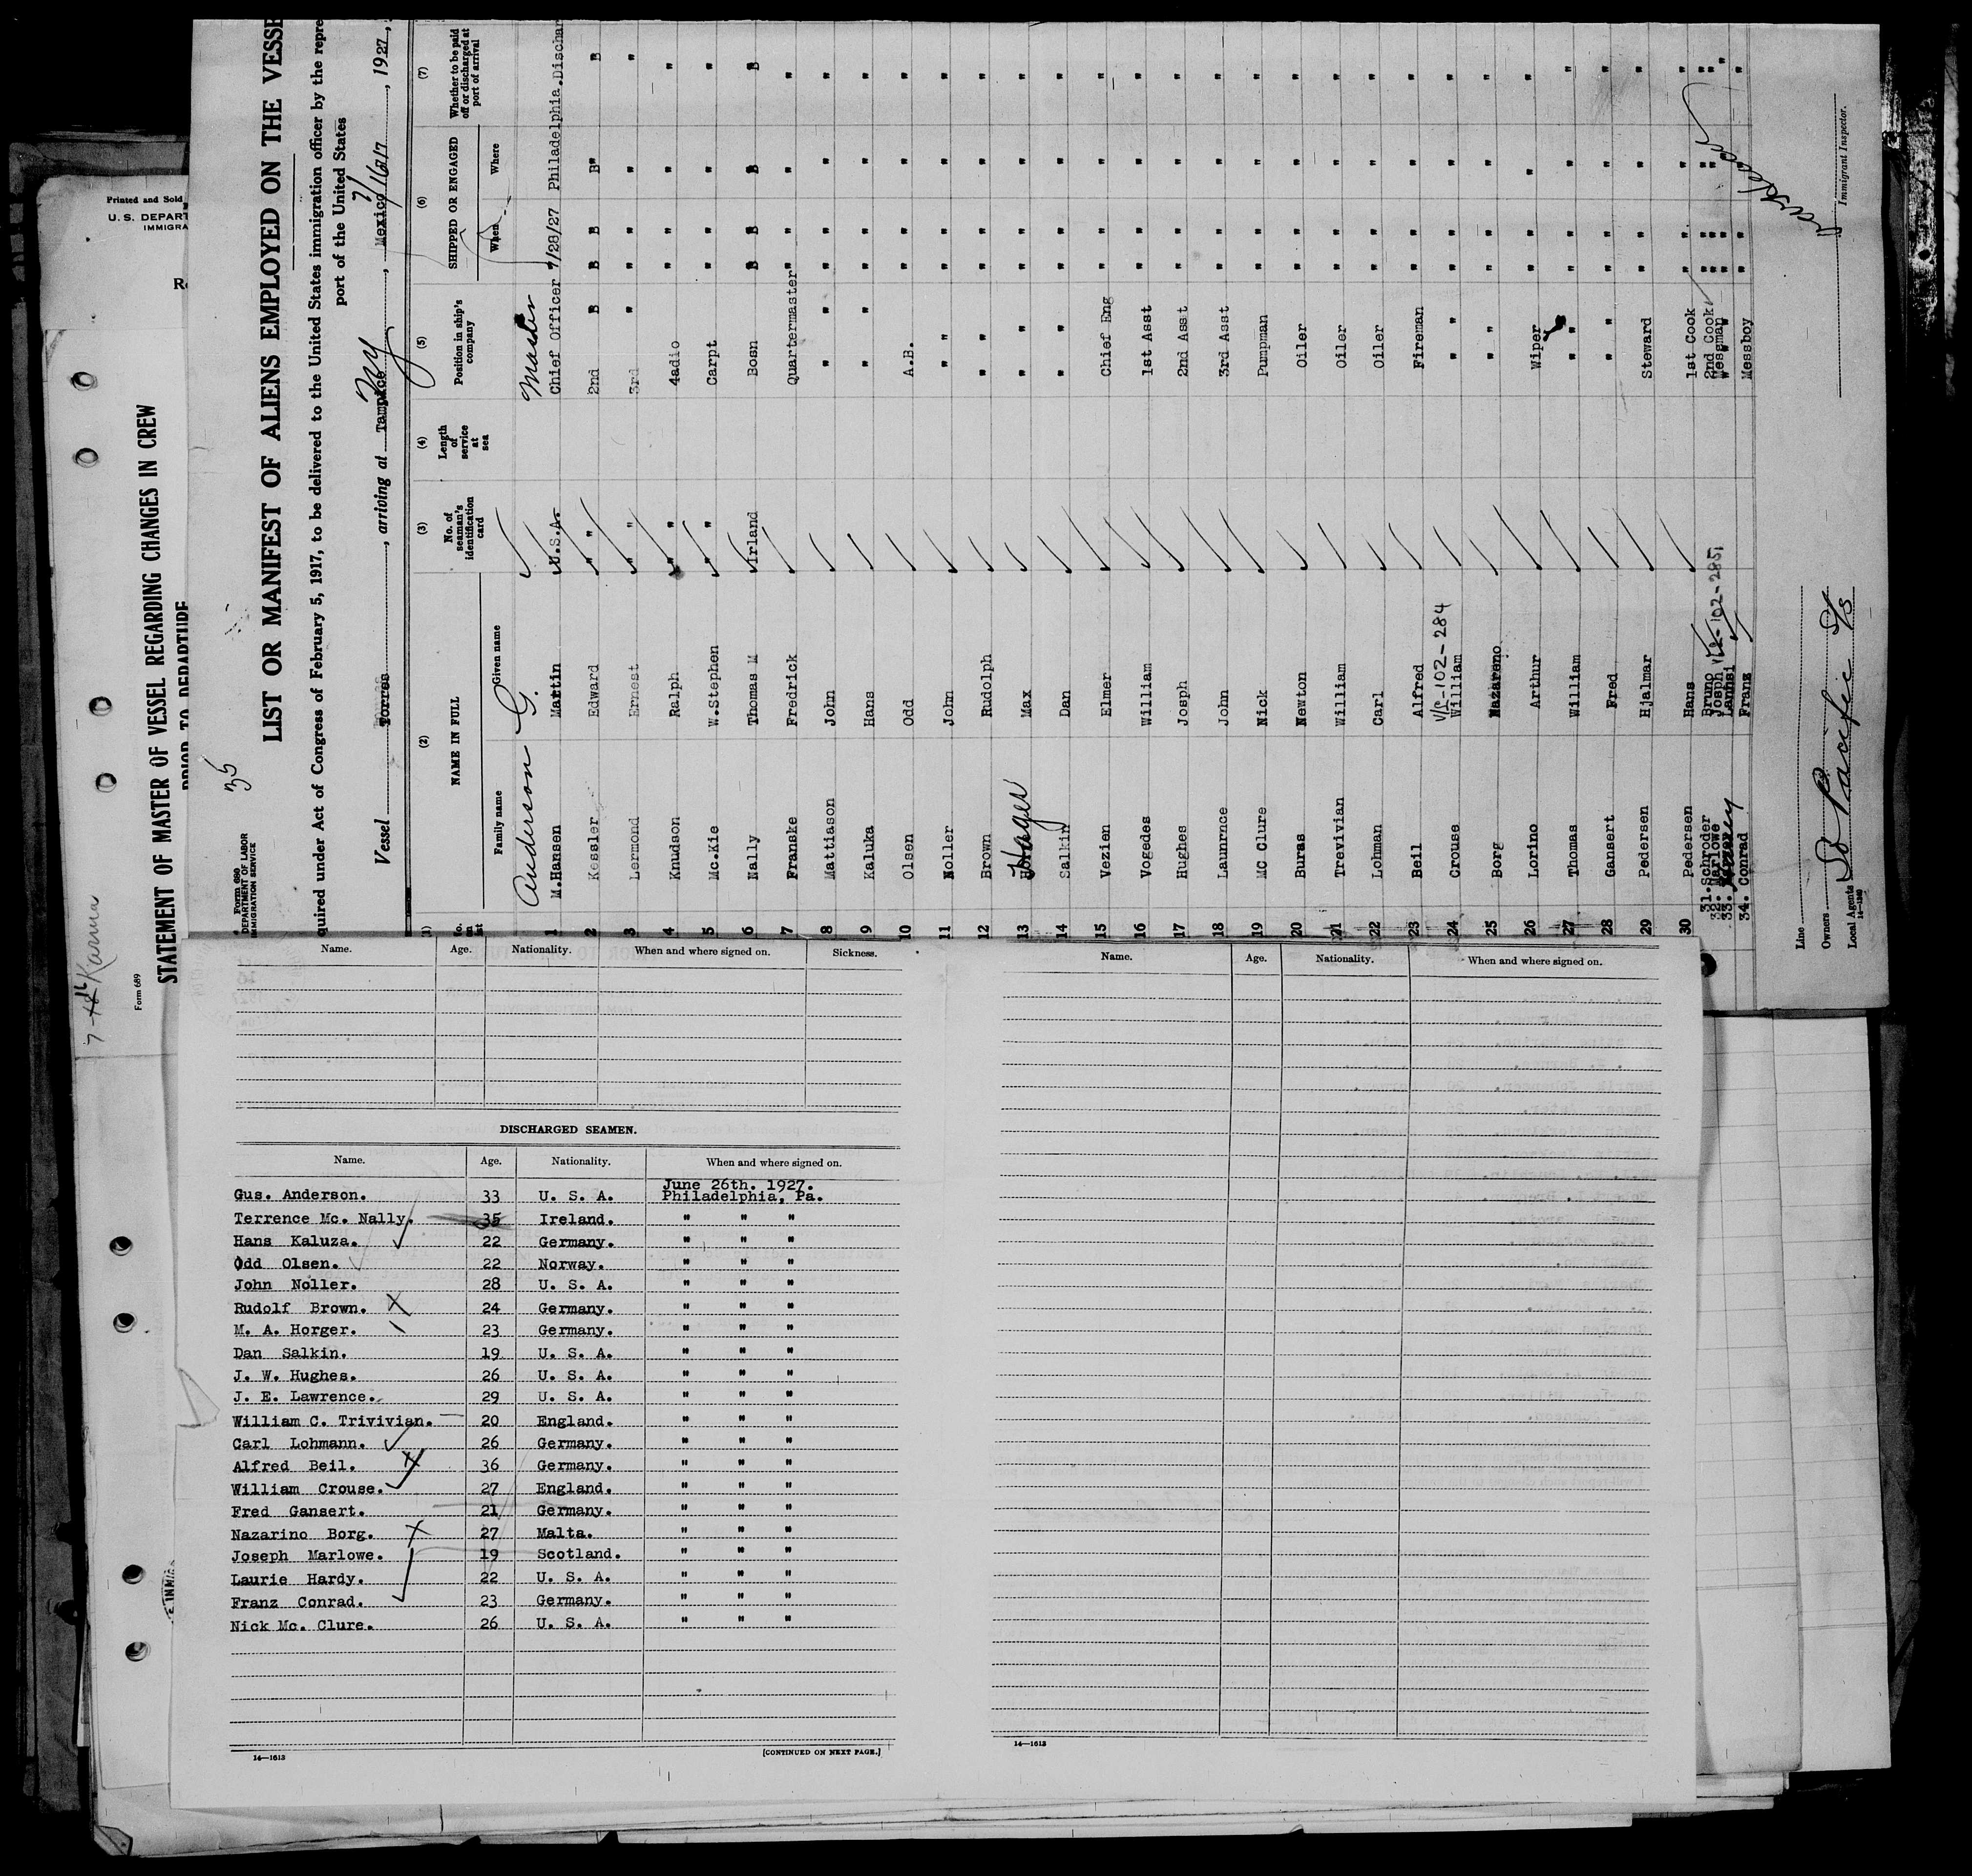 Printed and Sold
U.S. DEPART
IMMIGRA
Form 689
STATEMENT OF MASTER OF VESSEL REGARDING CHANGES IN CREW
PRIOR TO DEPARTURE
35
Form 680
DEPARTMENT OF LABOR
IMMIGRATION SERVICE
LIST OR MANIFEST OF ALIENS EMPLOYED ON THE VESSE
quired under Act of Congress of February 5, 1917, to be delivered to the United States immigration officer by the repre
port of the United States
Vessel Torres, arriving at Tampico, Mexico, 1927,
NY
(2) (3) (4) (5) (6) (7)
NAME IN FULL
Family name Given name
No. of seaman's identification card
Length of service at sea
Position in ship's company
SHIPPED OR ENGAGED
When Where
Whether to be paid off or discharged at port of arrival
Anderson G. Master
1 M.Hansen Martin U.S.A. Chief Officer 7/28/27 Philadelphia.Dischar
2 Kessler Edward " " 2nd B B B B B
3 Lermond Ernest " " 3rd " " " " "
4 Knudson Ralph " " 4adio " " " "
5 Mc.Kie W.Stephen " " Carpt " " " "
6 Nally Thomas M Irland Bosn B B B B
7 Franske Fredrick Quartermaster " " " "
8 Mattiason John " " " " "
9 Kaluka Hans " " " " "
10 Olsen Odd A.B. " " " "
11 Noller John " " " " " "
12 Brown Rudolph " " " " "
13 Hager Max " " " " "
14 Salkin Dan " " " " "
15 Vezien Elmer Chief Eng " " " "
16 Vogedes William 1st Asst " " " "
17 Hughes Josph 2nd Asst " " " "
18 Launrnce John 3rd Asst " " " "
19 MC Clure Nick Pumpman " " " "
20 Buras Newton Oiler " " " "
21 Trevivian William Oiler " " " "
22 Lohman Carl Oiler " " " "
23 Beil Alfred Fireman " " " "
V/P-102-284
24 Crouse William " " " " "
25 Borg Nazareno " " " " "
26 Lorino Arthur Wiper " " " "
27 Thomas William " " " " "
28 Gansert Fred " " " " "
29 Pedersen Hjalmar Steward " " " "
30 Pedersen Hans 1st Cook " " " "
31. Schroder Bruno 2nd Cook " " " "
32. Marlowe Josph Messman " " " "
33.
34. Conrad Franz Messboy " " " "
Line
Owners So Pacific S/S
Local Agents
14-1240
Immigrant Inspector.
Name. Age. Nationality. When and where signed on. Sickness.
DISCHARGED SEAMEN.
Name. Age. Nationality. When and where signed on.
June 26th. 1927.
Gus. Anderson. 33 U. S. A. Philadelphia, Pa.
Terrence Mc. Nally. 35 Ireland. " " "
Hans Kaluza. 22 Germany. " " "
Odd Olsen. 22 Norway. " " "
John Noller. 28 U. S. A. " " "
Rudolf Brown. 24 Germany. " " "
M. A. Horger. 23 Germany. " " "
Dan Salkin. 19 U. S. A. " " "
J. W. Hughes. 26 U. S. A. " " "
J. E. Lawrence. 29 U. S. A. " " "
William C. Trivivian. 20 England. " " "
Carl Lohmann. 26 Germany. " " "
Alfred Beil. 36 Germany. " " "
William Crouse. 27 England. " " "
Fred Gansert. 21 Germany. " " "
Nazarino Borg. 27 Malta. " " "
Joseph Marlowe. 19 Scotland. " " "
Laurie Hardy. 22 U. S. A. " " "
Franz Conrad. 23 Germany. " " "
Nick Mc. Clure. 26 U. S. A. " " "
14—1613 [CONTINUED ON NEXT PAGE.]
Name. Age. Nationality. When and where signed on.
14—1613